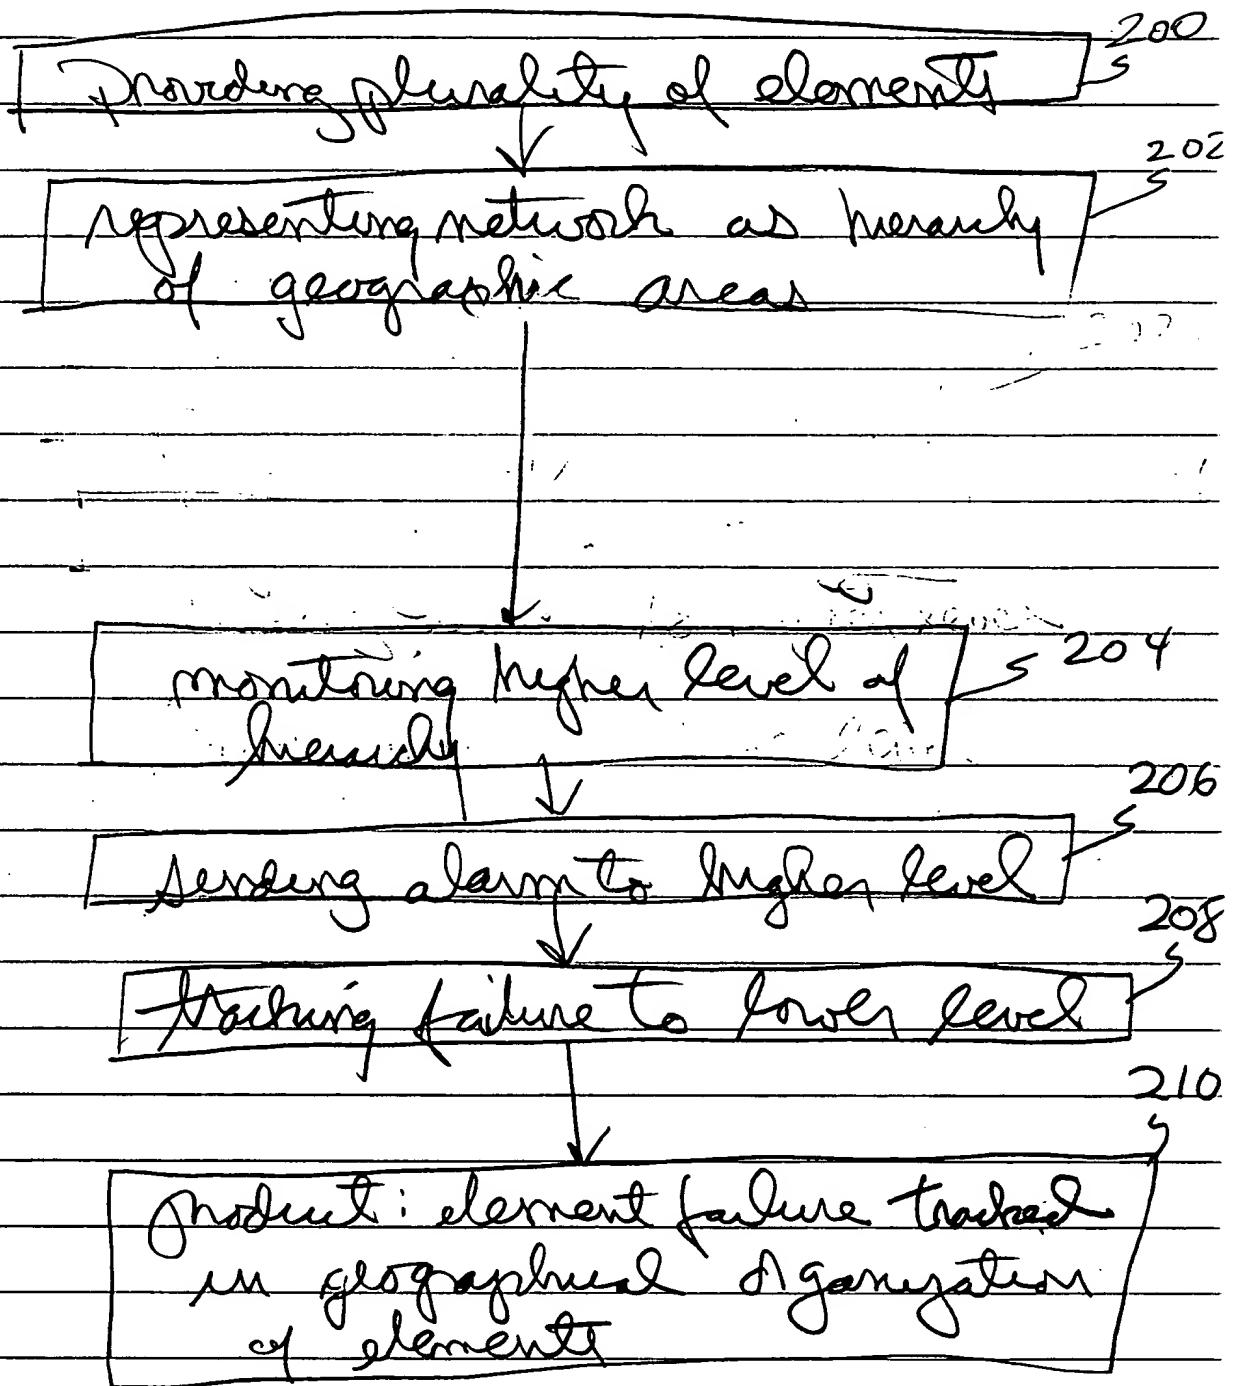 200
Providing plurality of elements
202
representing network as hierarchy
of geographic areas
204
monitoring higher level of
hierarchy
206
sending alarm to higher level
208
tracking failure to lower level
210
product: element failure tracked
in geographical organization
of elements